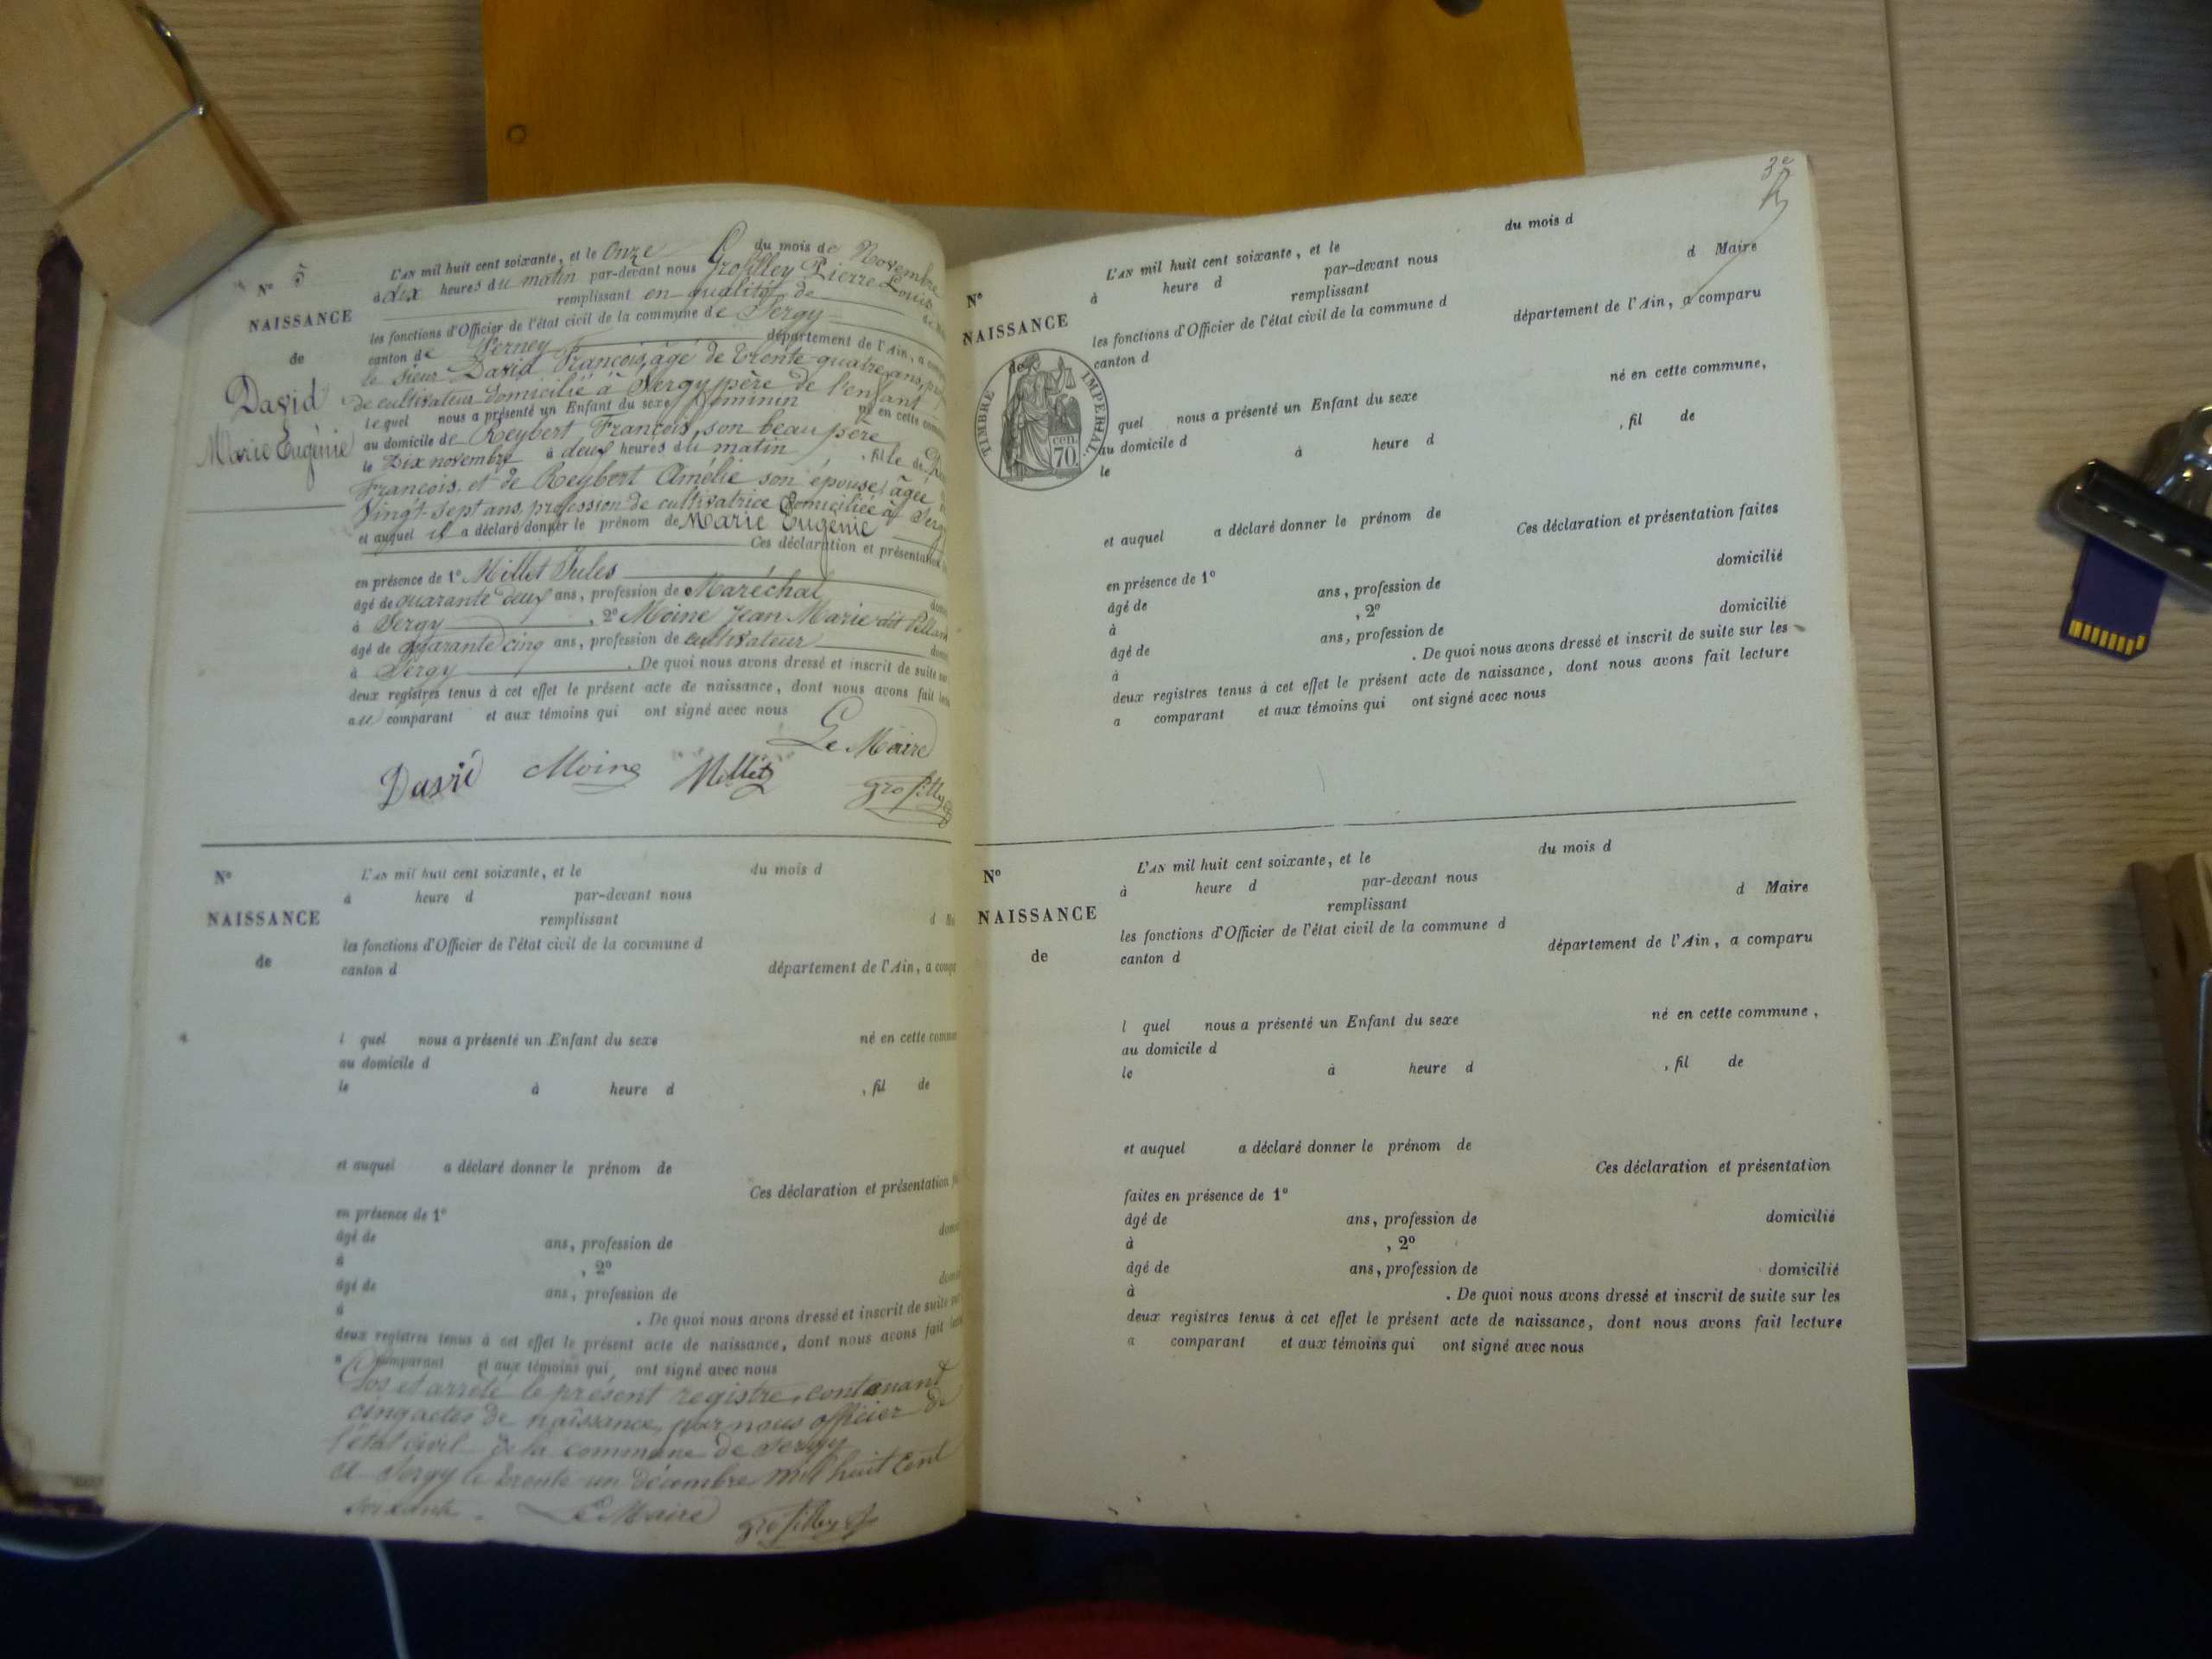 N° 5
NAISSANCE
de
David
Marie Eugénie
L'AN mil huit cent soixante, et le Onze du mois de Novembre
à dix heures du matin par-devant nous Grosilley Pierre Louis
remplissant en qualité de
les fonctions d'Officier de l'état civil de la commune de Sergy
canton de Ferney département de l'Ain, a
le sieur David François, âgé de trente quatre ans,
de cultivateur domicilié à Sergy père de l'enfant
lequel nous a présenté un Enfant du sexe féminin né en cette
au domicile de Reybert François, son beau père
le Dix novembre à deux heures du matin , fille de
François, et de Reybert Amélie son épouse, âgée
Vingt-sept ans, profession de cultivatrice domiciliée à Sergy
et auquel il a déclaré donner le prénom de Marie Eugénie
Ces déclaration et
en présence de 1° Millet Jules
âgé de quarante deux ans, profession de Maréchal
à Sergy , 2° Moine Jean Marie dit
âgé de quarante cinq ans, profession de cultivateur
à Sergy . De quoi nous avons dressé et inscrit de suite
deux registres tenus à cet effet le présent acte de naissance, dont nous avons fait
au comparant et aux témoins qui ont signé avec nous
Le Maire
David Moine Millet Grosilley
N°
NAISSANCE
de
L'AN mil huit cent soixante, et le du mois d
à heure d par-devant nous
remplissant d
les fonctions d'Officier de l'état civil de la commune d
canton d département de l'Ain, a
l quel nous a présenté un Enfant du sexe né en cette
au domicile d
le à heure d , fil de
et auquel a déclaré donner le prénom de
Ces déclaration et présentation
en présence de 1°
âgé de ans, profession de
à , 2°
âgé de ans, profession de
à . De quoi nous avons dressé et inscrit de suite
deux registres tenus à cet effet le présent acte de naissance, dont nous avons fait
a comparant et aux témoins qui ont signé avec nous
Clos et arrêté le présent registre, contenant
cinq actes de naissance, par nous officier de
l'état civil de la commune de Sergy
A Sergy le trente un décembre mil huit cent
soixante. Le Maire Grosilley
3e
N°
NAISSANCE
de
TIMBRE IMPERIAL
70 cen.
L'AN mil huit cent soixante, et le du mois d
à heure d par-devant nous
remplissant d Maire
les fonctions d'Officier de l'état civil de la commune d
canton d département de l'Ain, a comparu
quel nous a présenté un Enfant du sexe né en cette commune,
au domicile d
le à heure d , fil de
et auquel a déclaré donner le prénom de
Ces déclaration et présentation faites
en présence de 1°
âgé de ans, profession de domicilié
à , 2°
âgé de ans, profession de domicilié
à . De quoi nous avons dressé et inscrit de suite sur les
deux registres tenus à cet effet le présent acte de naissance, dont nous avons fait lecture
a comparant et aux témoins qui ont signé avec nous
N°
NAISSANCE
de
L'AN mil huit cent soixante, et le du mois d
à heure d par-devant nous
remplissant d Maire
les fonctions d'Officier de l'état civil de la commune d
canton d département de l'Ain, a comparu
l quel nous a présenté un Enfant du sexe né en cette commune,
au domicile d
le à heure d , fil de
et auquel a déclaré donner le prénom de
Ces déclaration et présentation
faites en présence de 1°
âgé de ans, profession de domicilié
à , 2°
âgé de ans, profession de domicilié
à . De quoi nous avons dressé et inscrit de suite sur les
deux registres tenus à cet effet le présent acte de naissance, dont nous avons fait lecture
a comparant et aux témoins qui ont signé avec nous